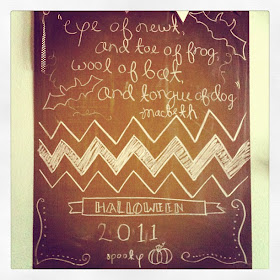 "Eye of newt,
and toe of frog
wool of bat,
and tongue of dog"
macbeth
HALLOWEEN
2011
spooky